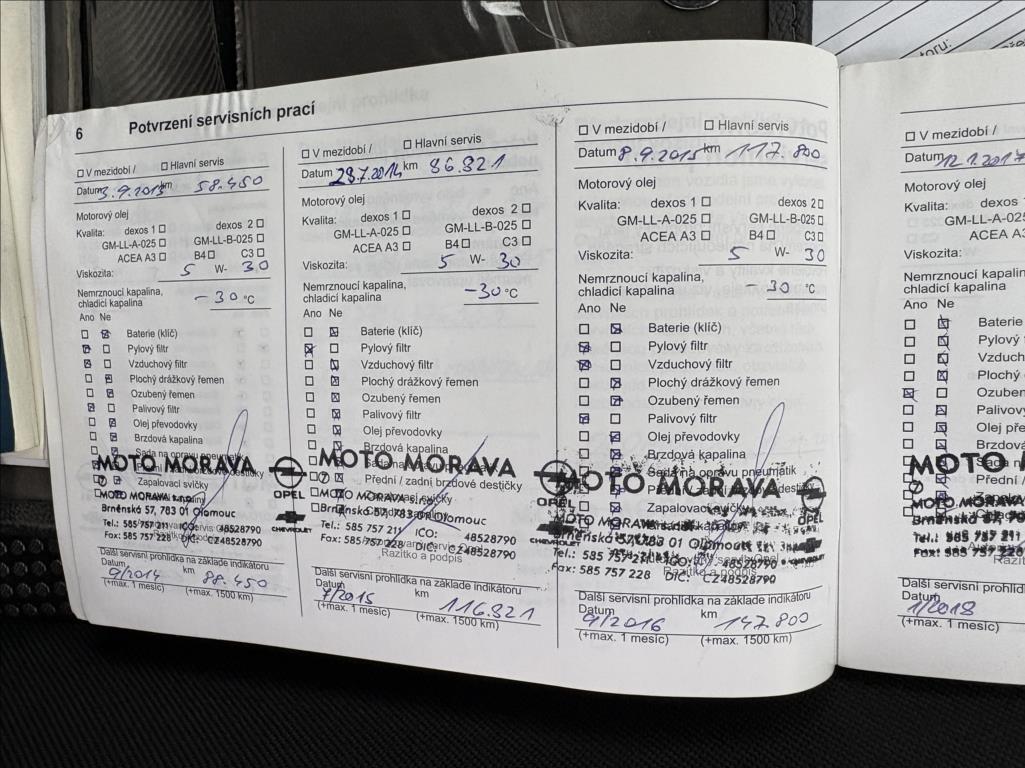 6 Potvrzení servisních prací
□ V mezidobí / □ Hlavní servis
Datum 3.9.2013 km 58.450
Motorový olej
Kvalita: dexos 1 □ dexos 2 □
GM-LL-A-025 □ GM-LL-B-025 □
ACEA A3 □ B4 □ C3 □
Viskozita: 5 W- 30
Nemrznoucí kapalina,
chladicí kapalina -30 °C
Ano Ne
Baterie (klíč)
Pylový filtr
Vzduchový filtr
Plochý drážkový řemen
Ozubený řemen
Palivový filtr
Olej převodovky
Brzdová kapalina
Sada na opravu pneumatik
MOTO MORAVA
OPEL
Zapalovací svíčky
MOTO MORAVA s.r.o.
Brněnská 57, 783 01 Olomouc
Tel.: 585 757 211 IČO: 48528790
Fax: 585 757 228 DIČ: CZ48528790
CHEVROLET
Další servisní prohlídka na základě indikátoru
Datum 9/2014 km 88.450
(+max. 1 měsíc) (+max. 1500 km)
□ V mezidobí / □ Hlavní servis
Datum 28.7.2014 km 86.821
Motorový olej
Kvalita: dexos 1 □ dexos 2 □
GM-LL-A-025 □ GM-LL-B-025 □
ACEA A3 □ B4 □ C3 □
Viskozita: 5 W- 30
Nemrznoucí kapalina,
chladicí kapalina -30 °C
Ano Ne
Baterie (klíč)
Pylový filtr
Vzduchový filtr
Plochý drážkový řemen
Ozubený řemen
Palivový filtr
Olej převodovky
Brzdová kapalina
MOTO MORAVA
OPEL
Přední / zadní brzdové destičky
MOTO MORAVA s.r.o.
Brněnská 57, 783 01 Olomouc
Tel.: 585 757 211 IČO: 48528790
Fax: 585 757 228 DIČ: CZ48528790
CHEVROLET
Razítko a podpis
Další servisní prohlídka na základě indikátoru
Datum 7/2015 km 116.821
(+max. 1 měsíc) (+max. 1500 km)
□ V mezidobí / □ Hlavní servis
Datum 8.9.2015 km 117.800
Motorový olej
Kvalita: dexos 1 □ dexos 2 □
GM-LL-A-025 □ GM-LL-B-025 □
ACEA A3 □ B4 □ C3 □
Viskozita: 5 W- 30
Nemrznoucí kapalina,
chladicí kapalina -30 °C
Ano Ne
Baterie (klíč)
Pylový filtr
Vzduchový filtr
Plochý drážkový řemen
Ozubený řemen
Palivový filtr
Olej převodovky
Brzdová kapalina
Sada na opravu pneumatik
MOTO MORAVA
OPEL
Zapalovací svíčky
MOTO MORAVA
Brněnská 57, 783 01 Olomouc
Tel.: 585 757 211 IČO: 48528790
Fax: 585 757 228 DIČ: CZ48528790
Razítko a podpis
Další servisní prohlídka na základě indikátoru
Datum 9/2016 km 147.800
(+max. 1 měsíc) (+max. 1500 km)
□ V mezidobí /
Datum 12.1.2017
Motorový olej
Kvalita:
GM-LL-A-025
ACEA A3
Viskozita:
Nemrznoucí kapalina,
chladicí kapalina
Ano Ne
Baterie
Pylový f
Vzduch
Plochý
Ozuben
Palivo
Olej p
Brzdo
MOTO
Přední /
MOTO MORAVA
Brněnská 57,
Tel.: 585 757 211
Fax: 585 757 228
Razítk
Další servisní prohlídka
Datum 1/2018
(+max. 1 měsíc)